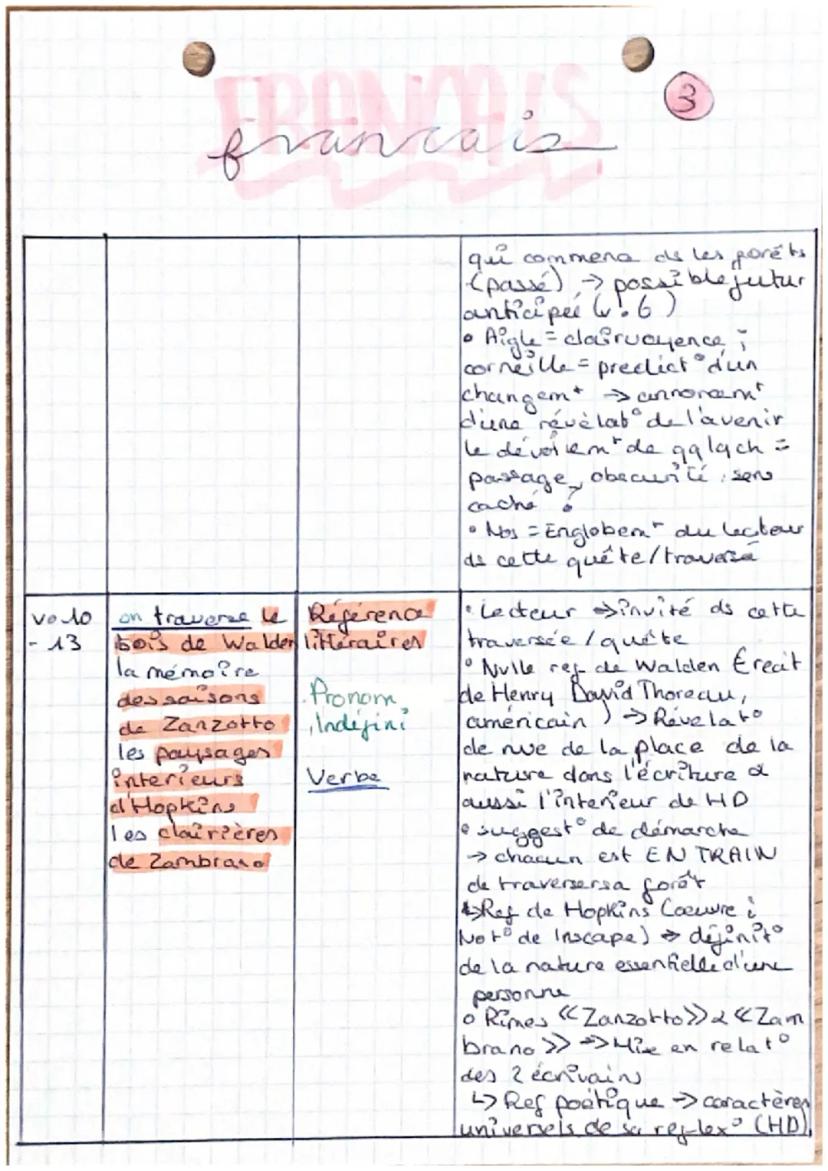 FRANÇAIS
français
3
qui commence ds les forêts
(passé) → possible futur
anticipé (v.6)
• Aigle = clairvoyence ;
corneille = predict° d'un
changem^t → annoncem^t
d'une révélat° de l'avenir
le dévoilem^t de qqlqch =
passage, obscurité, sens
caché
• Nos = Englobem^t du lecteur
ds cette quête/traversé
vo 10
- 13
on traverse le
bois de Walden
la mémoire
des saisons
de Zanzotto
les paysages
interieurs
d'Hopkins
les clairières
de Zambrano
Référence
littéraires
Pronom
Indéfini
Verbe
• Lecteur → invité ds cette
traversée / quête
• Nvlle ref de Walden (recit
de Henry David Thoreau,
américain) → Révelat°
de nve de la place de la
nature dans l'écriture &
aussi l'interieur de HD
• suggest° de démarche
→ chacun est EN TRAIN
de traverser sa forêt
↳ Ref de Hopkins (œuvre ;
Not° de Inscape) → définit°
de la nature essentielle d'une
personne
• Rimes «Zanzotto» & «Zam
brano» → Mise en relat°
des 2 écrivains
↳ Ref poétique → caractères
universels de sa reflex° (HD)